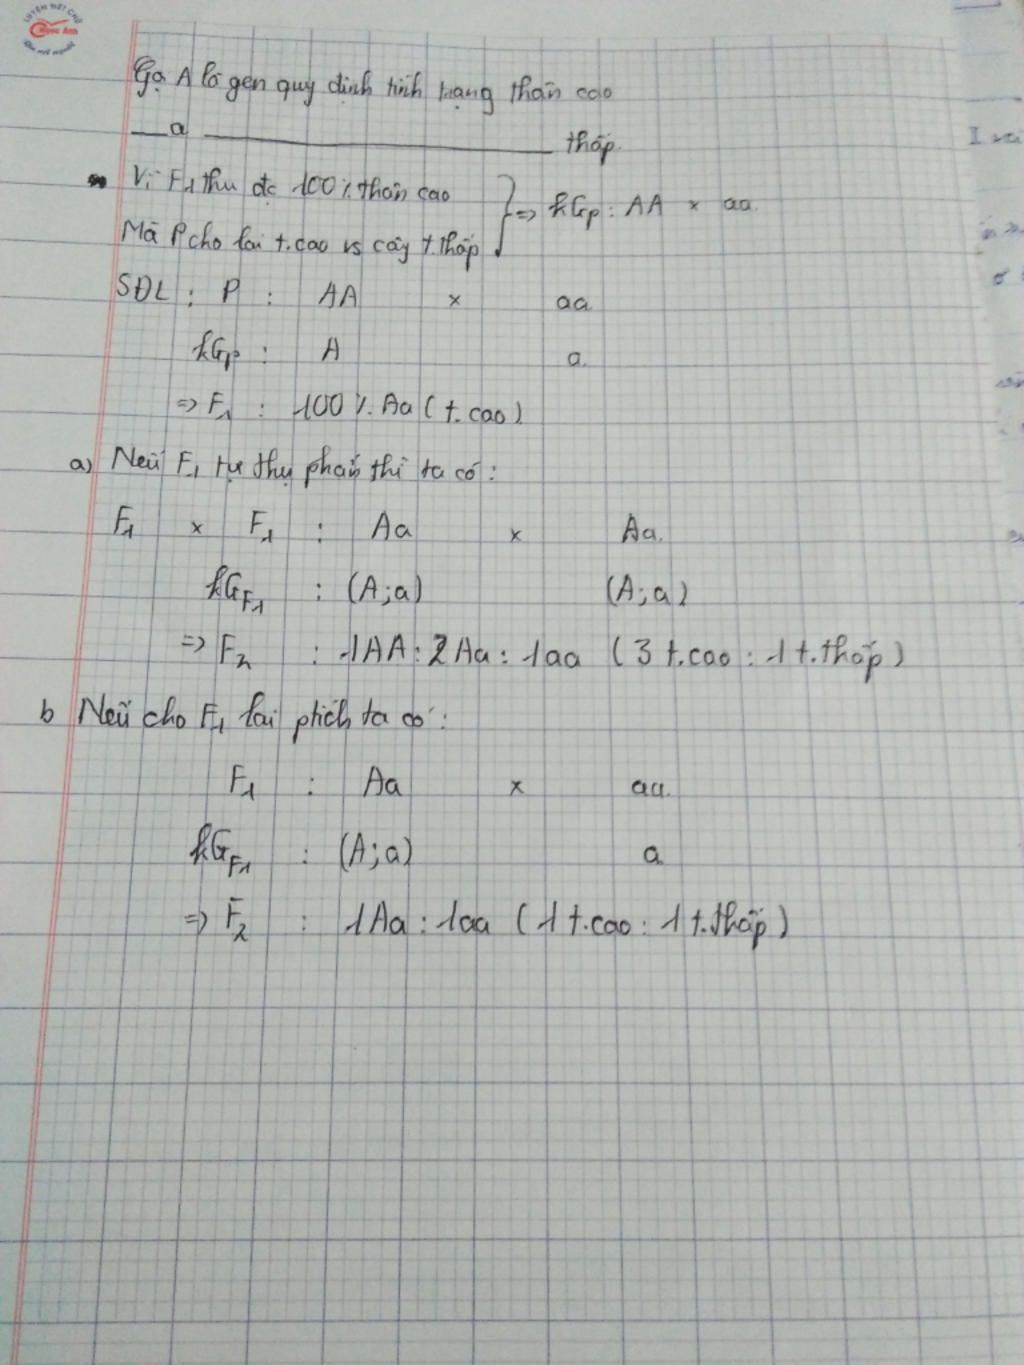 LUYỆN VIẾT CHỮ
Ngọc Anh
Gọi A là gen quy định tính trạng thân cao
a thấp.
Vì F1 thu đc 100% thân cao
Mà P cho lai t.cao vs cây t.thấp } => kGp : AA × aa.
SĐL : P : AA × aa
kGp : A a.
=> F1 : 100% Aa (t.cao)
a) Nếu F1 tự thụ phấn thì ta có :
F1 × F1 : Aa × Aa.
kGF1 : (A;a) (A;a)
=> F2 : 1AA : 2Aa : 1aa (3 t.cao : 1 t.thấp)
b Nếu cho F1 lai ptích ta có :
F1 : Aa × aa.
kGF1 : (A;a) a
=> F2 : 1Aa : 1aa (1 t.cao : 1 t.thấp)